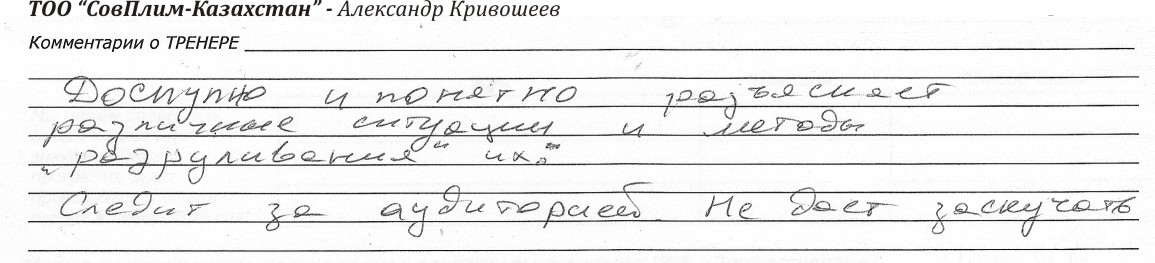 ТОО “СовПлим-Казахстан” - Александр Кривошеев
Комментарии о ТРЕНЕРЕ
Доступно и понятно разъясняет
различные ситуации и методы
„разруливания“ их.
Следит за аудиторией. Не даст заскучать